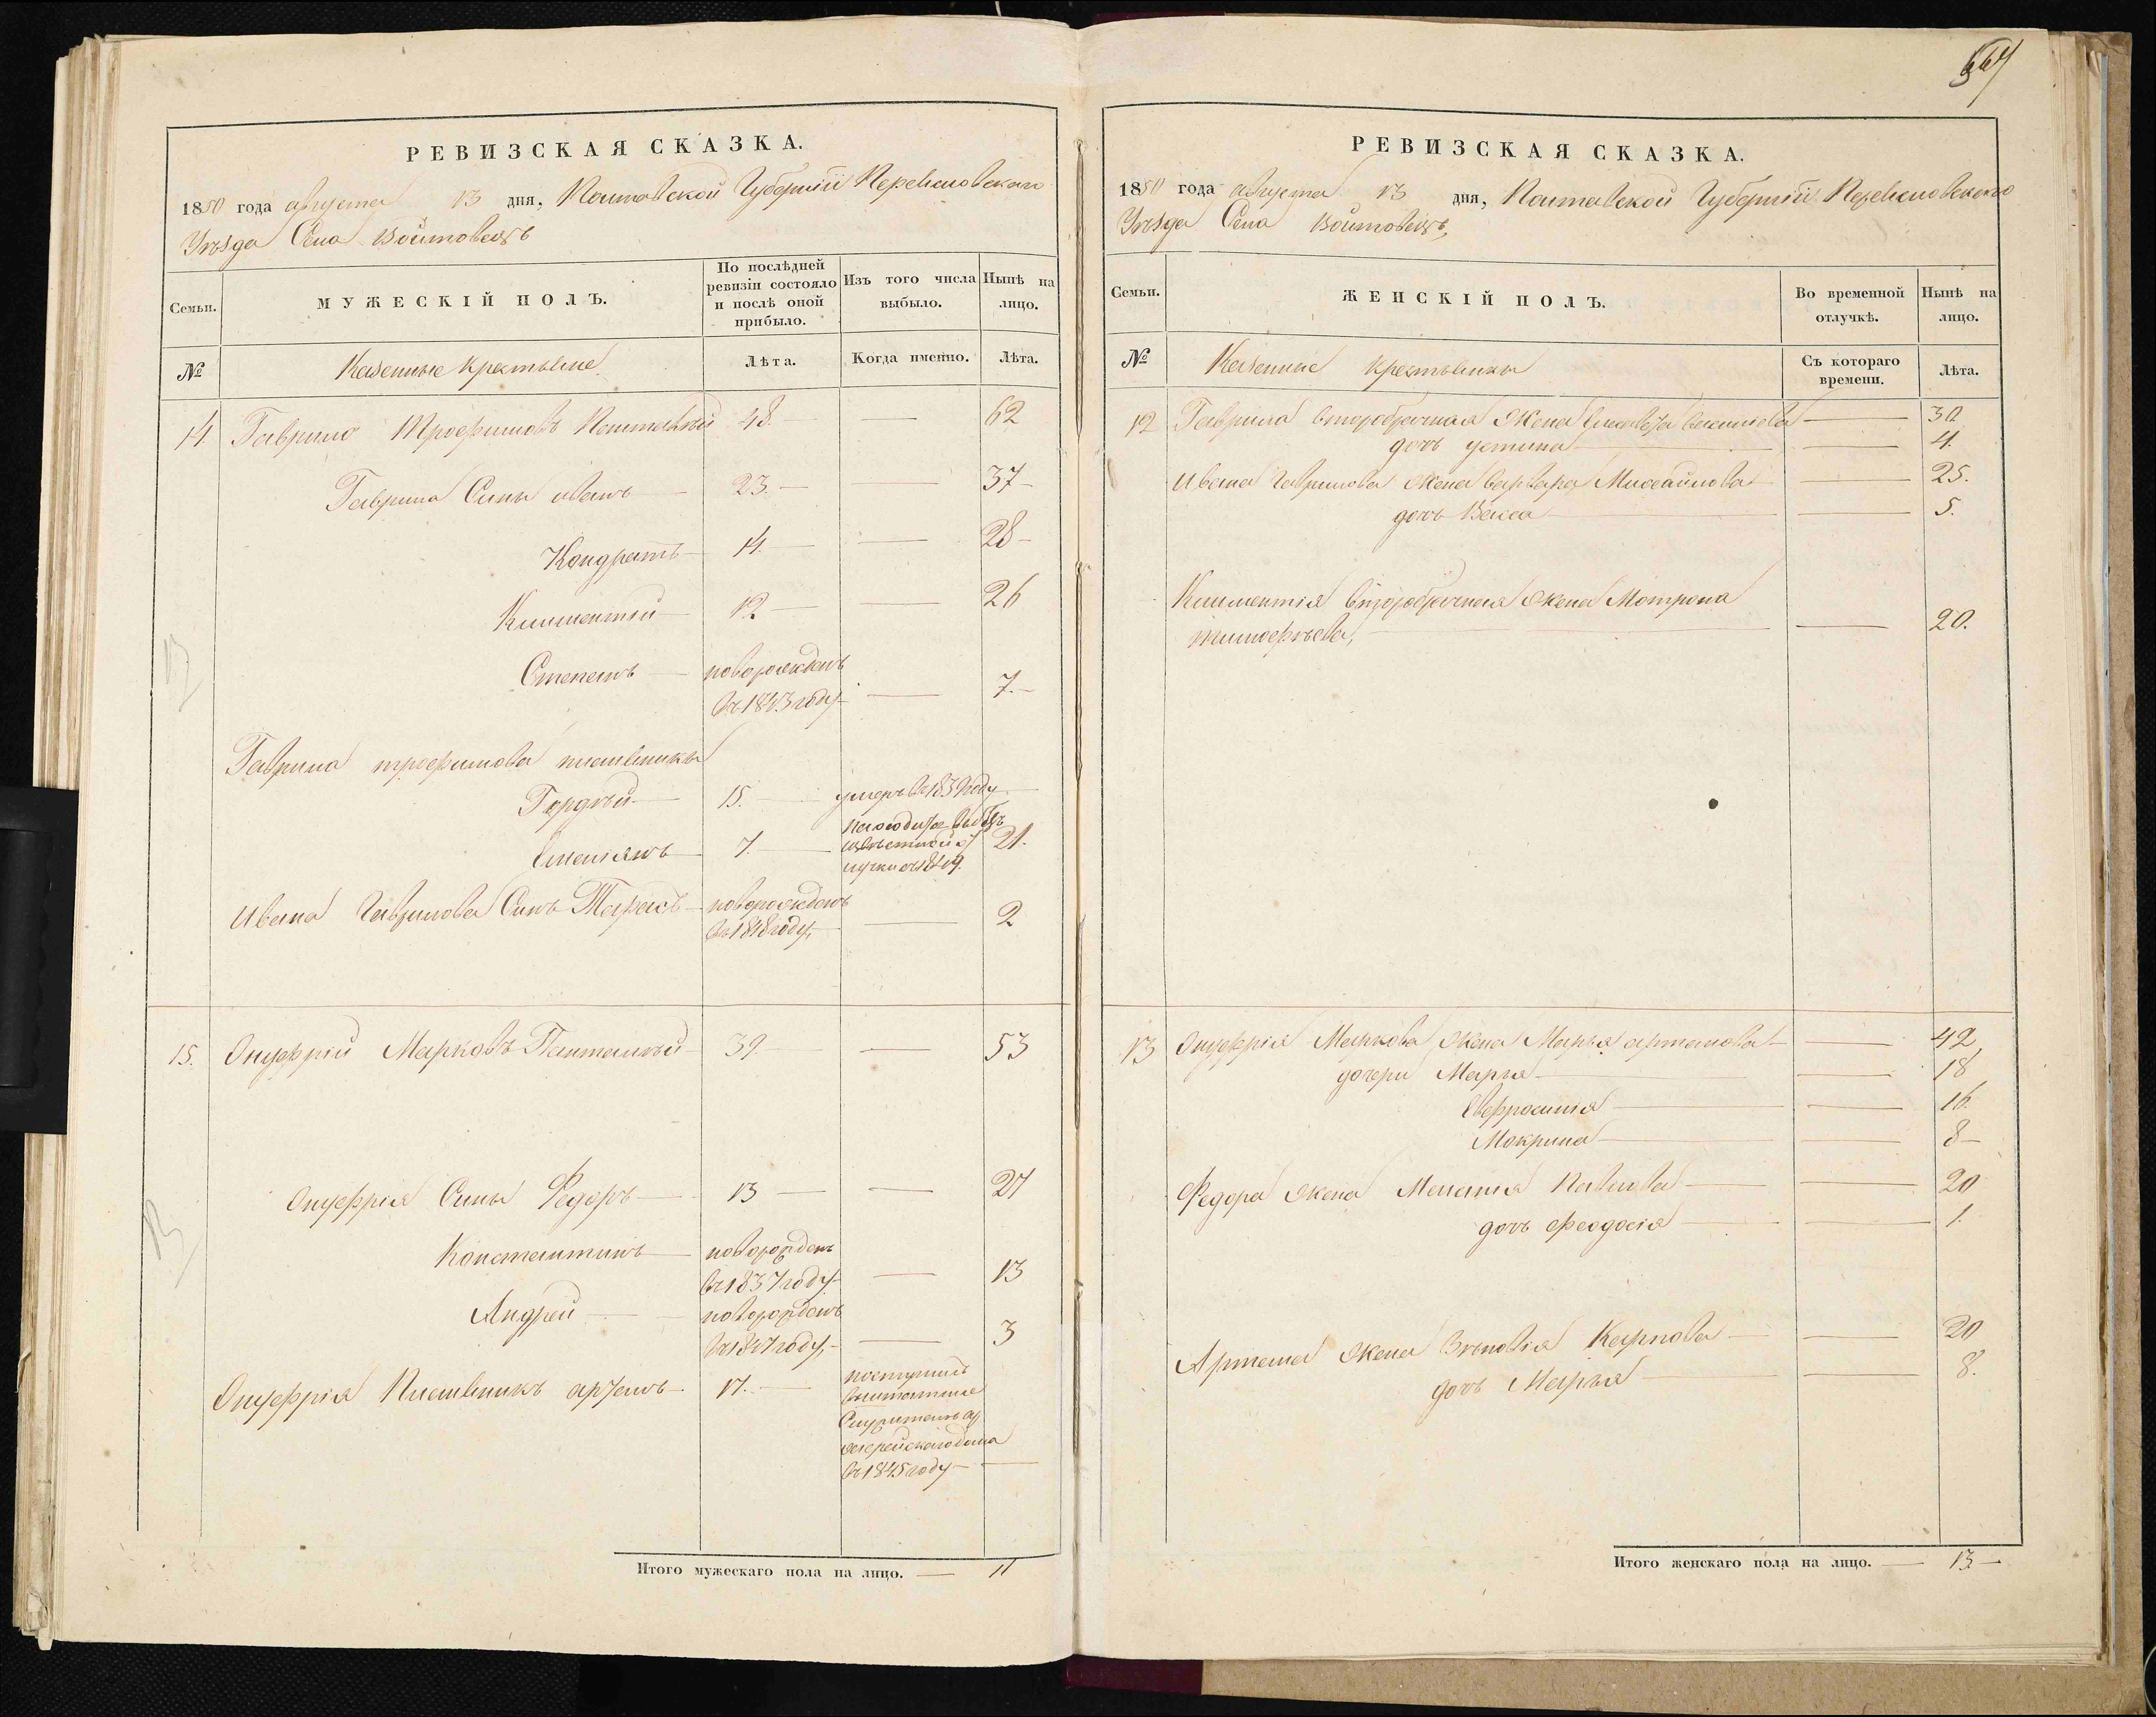 664
РЕВИЗСКАЯ СКАЗКА.
1850 года августа 13 дня, Полтавской Губерніи Переяславскаго
Уѣзда Села Войтовецъ
Семьи. МУЖЕСКІЙ ПОЛЪ. По послѣдней ревизіи состояло и послѣ оной прибыло. Изъ того числа выбыло. Нынѣ на лицо.
№ Казенные крестьяне Лѣта. Когда именно. Лѣта.
14 Гаврило Трофимовъ 48. 62
Гаврила Сыны иванъ 23. 37
Кондратъ 14. 28
Климентій 12 26
Степанъ новорожденъ
въ 1843 году 7.
Гаврила трофимова племянники
Гордѣй 15. умеръ въ 1839 году
7. 21.
Ивана Гаврилова Сынъ Тарасъ новорожденъ
въ 1848 году, 2
15. Онуфрій Марковъ Пантелѣй 39. 53
Онуфрія Сыны Федоръ 13 27
Константинъ новорожденъ
въ 1837 году 13
Андрей новорожденъ
въ 1847 году, 3
Онуфрія Племянникъ артемъ 17. поступилъ
въ 1845 году
Итого мужескаго пола на лицо. 11
РЕВИЗСКАЯ СКАЗКА.
1850 года августа 13 дня, Полтавской Губерніи Переяславскаго
Уѣзда Села Войтовецъ,
Семьи. ЖЕНСКІЙ ПОЛЪ. Во временной отлучкѣ. Нынѣ на лицо.
№ Казенные крестьянки Съ котораго времени. Лѣта.
12 Гаврила второбрачная Жена 30.
дочь устина 4.
Ивана Гаврилова Жена варвара Михайлова 25.
дочь Васса 5.
Климентія второбрачная Жена Мотрона
тимофѣева, 20.
13 Онуфрія Маркова Жена Марья артемова 42
дочери Марья 18
Евфросинія 16.
Мокрина 8
Федора Жена Меланія Павлова 20
дочь Феодосія 1.
Артема Жена Зѣновія Карпова 20
дочь Марья 8.
Итого женскаго пола на лицо. 13